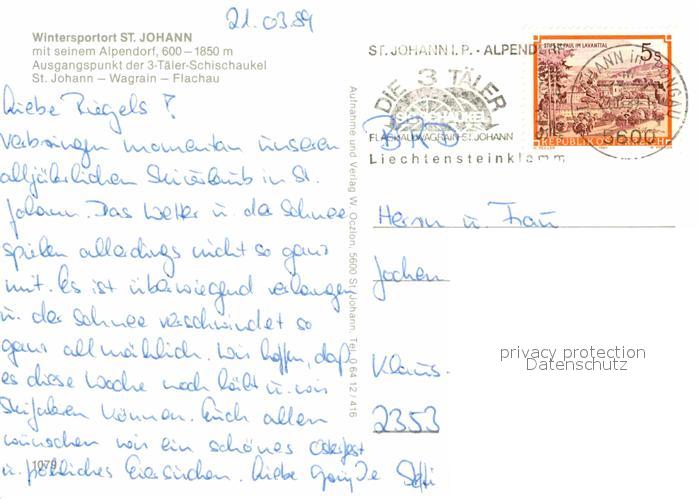 21.03.89
Wintersportort ST. JOHANN
mit seinem Alpendorf, 600–1850 m
Ausgangspunkt der 3-Täler-Schischaukel
St. Johann – Wagrain – Flachau
Liebe Riegels!
Verbringen momentan unseren
alljährlichen Skiurlaub in St.
Johann. Das Wetter u. der Schnee
spielen allerdings nicht so ganz
mit. Es ist überwiegend verhangen
u. der Schnee verschwindet so
ganz allmählich. Wir hoffen, daß
es diese Woche noch hält u. wir
Skifahren können. Euch allen
wünschen wir ein schönes Osterfest
u. fröhliches Eiersuchen. Liebe
1079
Aufnahme und Verlag W. Oczlon, 5600 St. Johann, Tel. 0 64 12 / 416
ST. JOHANN I. P. - ALPENDORF
DIE 3 TÄLER
FLACHAU WAGRAIN ST. JOHANN
Liechtensteinklamm
BRD
STIFT ST. PAUL IM LAVANTTAL
5 S
REPUBLIK ÖSTERREICH
ST. JOHANN im PONGAU
5600
Herrn u. Frau
Jochen
Klaus.
2353
privacy protection
Datenschutz